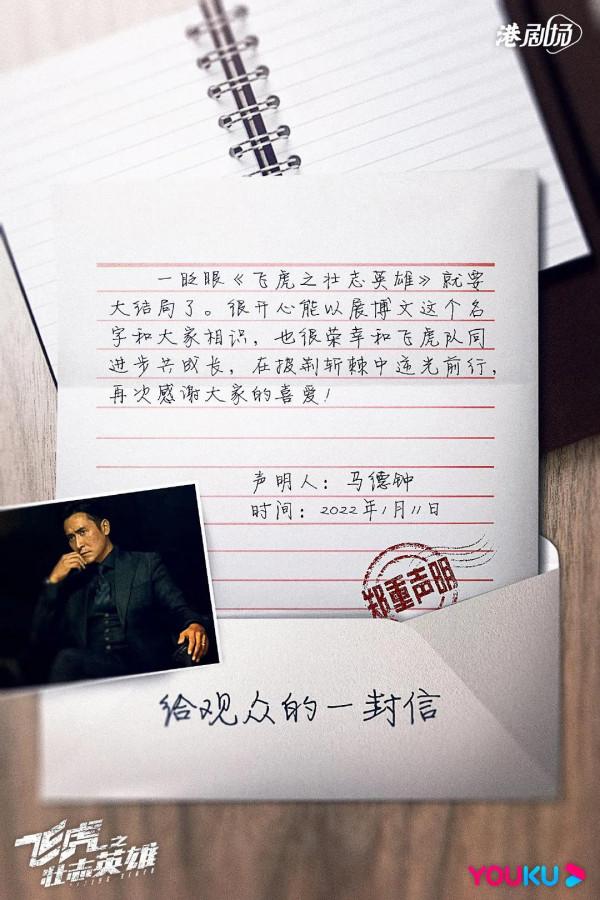 港剧场
一眨眼《飞虎之壮志英雄》就要
大结局了。很开心能以展博文这个名
字和大家相识，也很荣幸和飞虎队同
进步共成长，在披荆斩棘中逆光前行，
再次感谢大家的喜爱！
声明人：马德钟
时间：2022年1月11日
郑重声明
给观众的一封信
飞虎之
壮志英雄
YOUKU